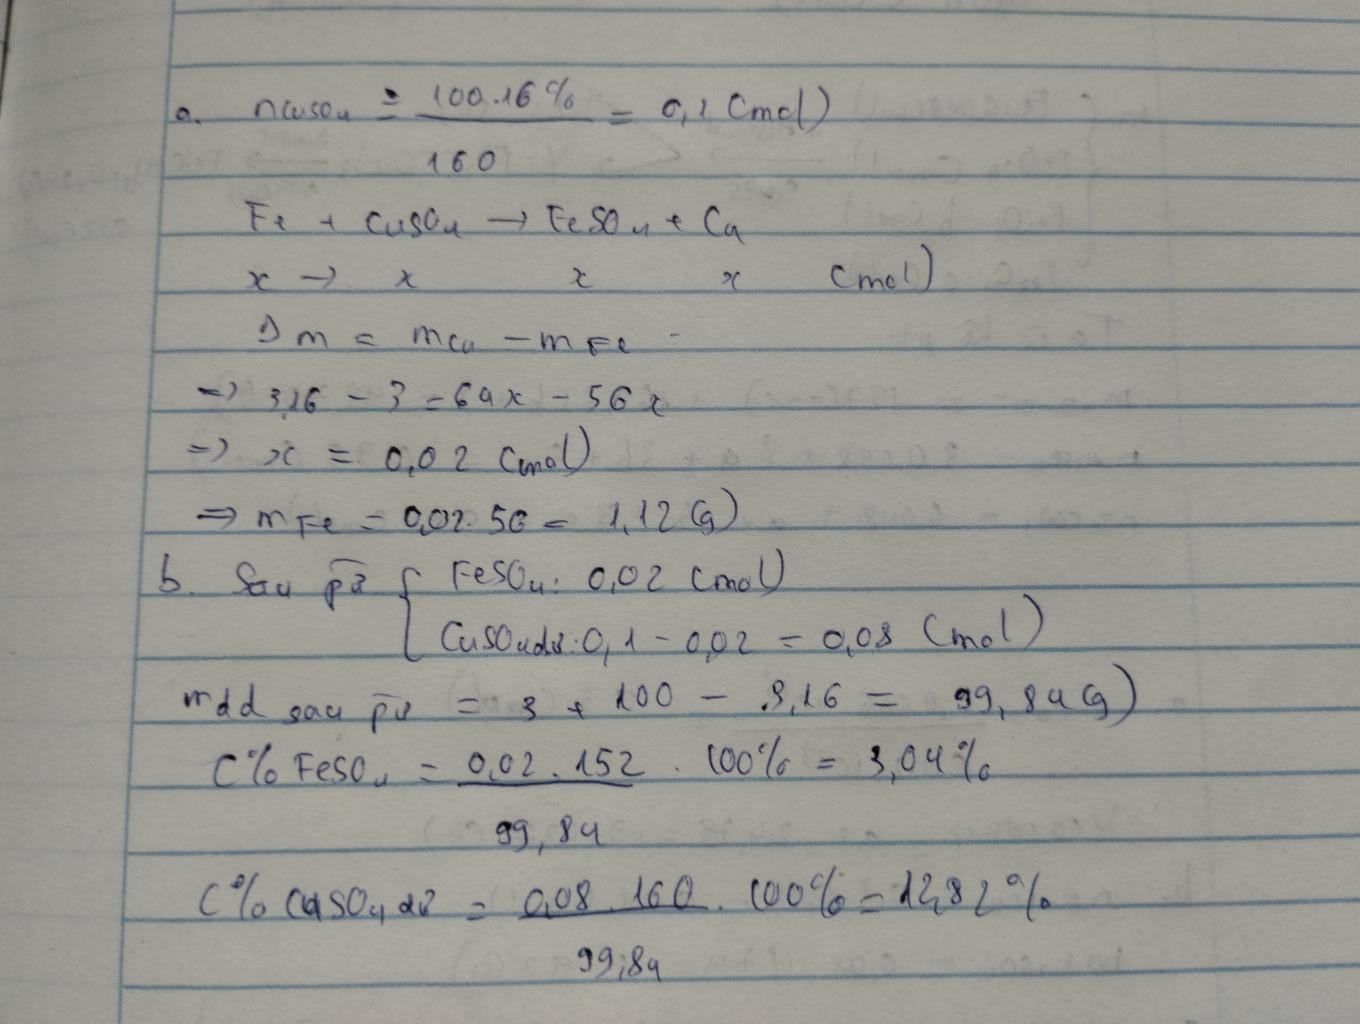 a. nCuSO4 = 100.16% / 160 = 0,1 (mol)
Fe + CuSO4 → FeSO4 + Cu
x → x x x (mol)
Δm = mCu - mFe
=> 3,16 - 3 = 64x - 56x
=> x = 0,02 (mol)
=> mFe = 0,02.56 = 1,12 (g)
b. Sau pứ { FeSO4: 0,02 (mol)
CuSO4 dư: 0,1 - 0,02 = 0,08 (mol)
mdd sau pứ = 3 + 100 - 3,16 = 99,84 (g)
C% FeSO4 = 0,02.152 / 99,84 . 100% = 3,04%
C% CuSO4 dư = 0,08.160 / 99,84 . 100% = 12,82%